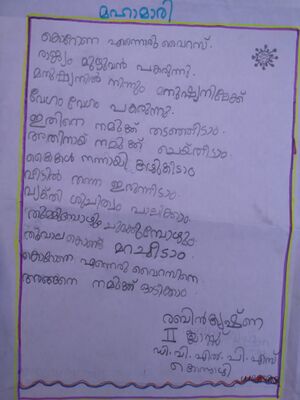 മഹാമാരി
കൊറോണ എന്നൊരു വൈറസ്.
രാജ്യം മുഴുവൻ പകരുന്നു.
മനുഷ്യനിൽ നിന്നും മനുഷ്യനിലേക്ക്
വേഗം വേഗം പകരുന്നു.
ഇതിനെ നമുക്ക് തടഞ്ഞീടാം.
അതിനായ് നമുക്ക് ചെയ്തീടാം
കൈകൾ നന്നായി കഴുകിടാം
വീട്ടിൽ തന്നെ ഇരുന്നീടാം
വ്യക്തി ശുചിത്വം പാലിക്കാം
തുമ്മുമ്പോഴും ചുമക്കുമ്പോഴും
തൂവാല കൊണ്ട് മറച്ചീടാം
കൊറോണ എന്നൊരു വൈറസിനെ
അങ്ങനെ നമുക്ക് ഓടിക്കാം
രബിൻകൃഷ്ണ
II ക്ലാസ്സ്
പി. വി. എൽ. പി. എസ്